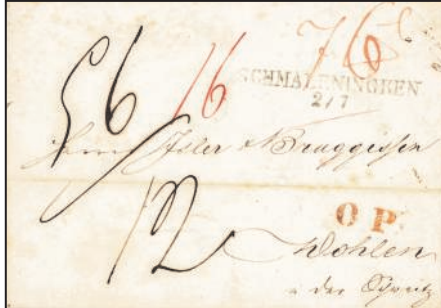 56 16 76
SCHMALENINGKEN
2/7
Isler & Bruggisser
12
O P.
Wohlen
in der Schweiz